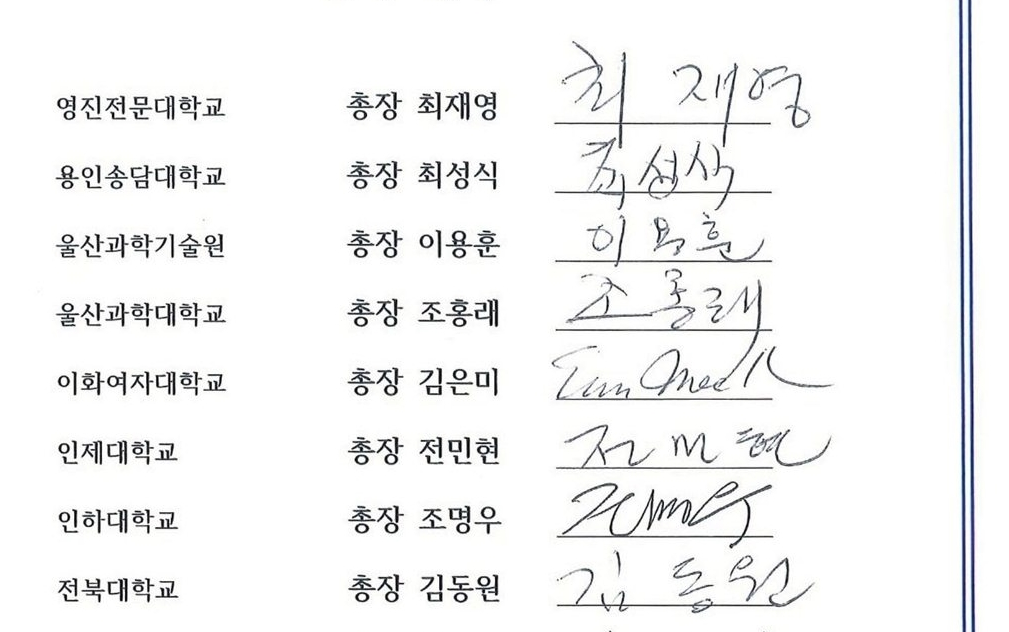 영진전문대학교 총장 최재영 최 재영
용인송담대학교 총장 최성식 최성식
울산과학기술원 총장 이용훈 이용훈
울산과학대학교 총장 조홍래 조홍래
이화여자대학교 총장 김은미 Eun Mee K
인제대학교 총장 전민현 전민현
인하대학교 총장 조명우
전북대학교 총장 김동원 김동원